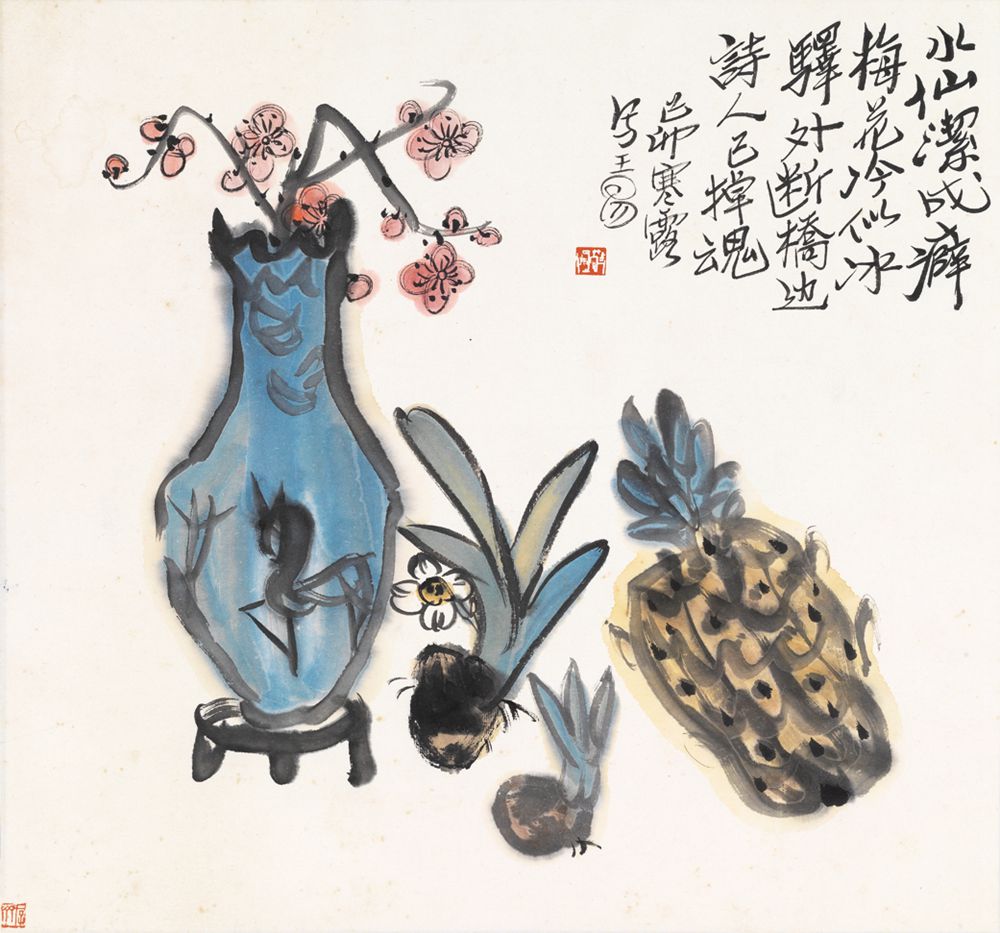 水仙潔成癖
梅花冷似冰
驛外断橋边
詩人已掉魂
己卯寒露